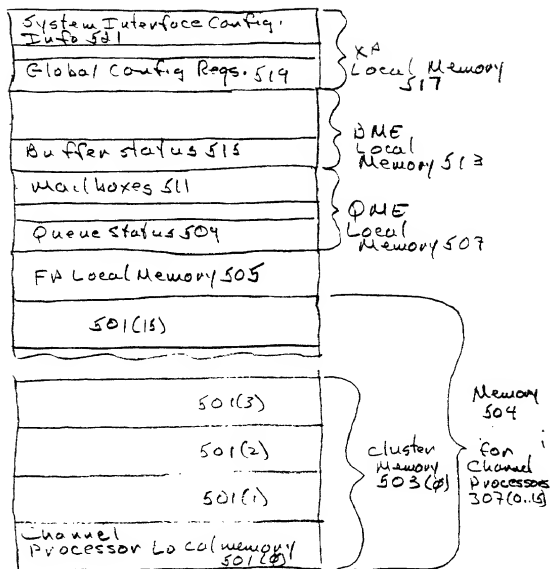 System Interface Config.
Info 521
Global Config Regs. 519
XP
Local Memory
517
Buffer status 515
BME
Local
Memory 513
Mailboxes 511
Queue Status 509
QME
Local
Memory 507
FP Local Memory 505
501(15)
501(3)
501(2)
501(1)
Channel
Processor Local memory
501(0)
Cluster
Memory
503(0)
Memory
504
for
Channel
Processors
307(0..15)